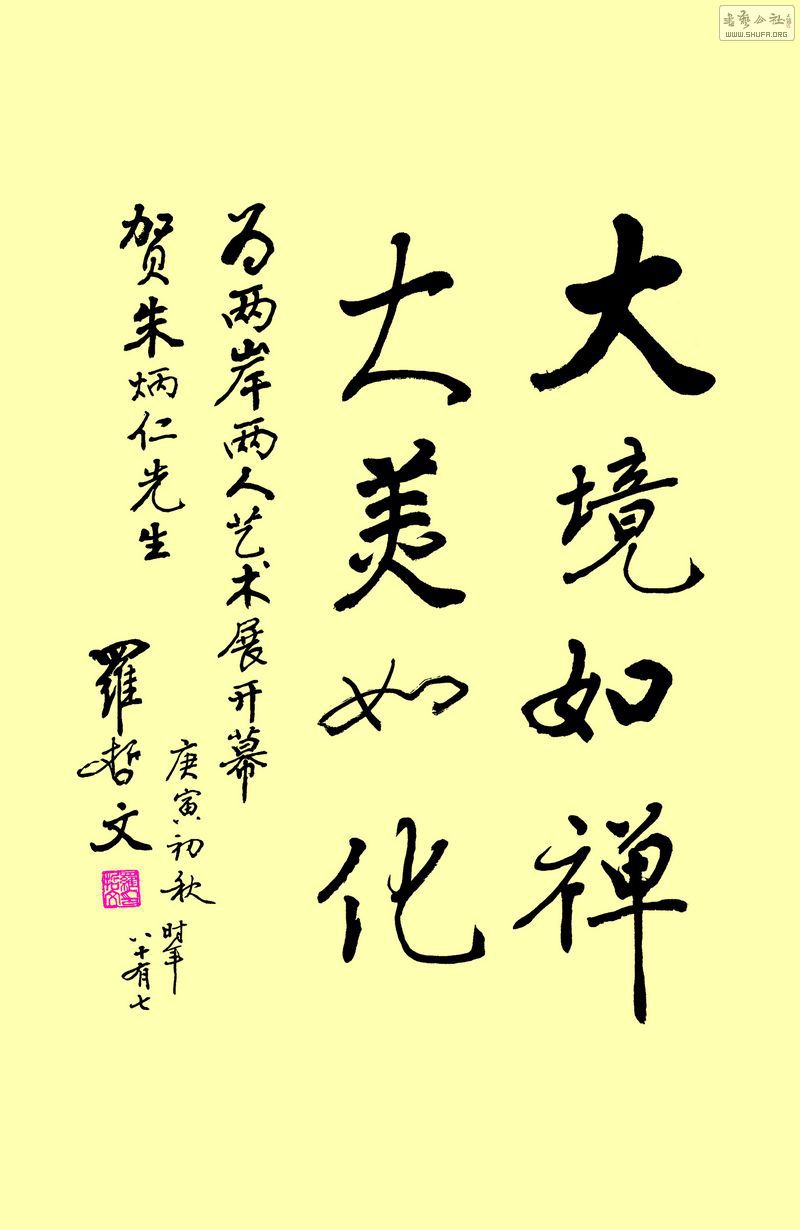 大境如禅
大美如化
为两岸两人艺术展开幕
贺朱炳仁先生
庚寅初秋
罗哲文
时年
八十有七
书艺公社
WWW.SHUFA.ORG